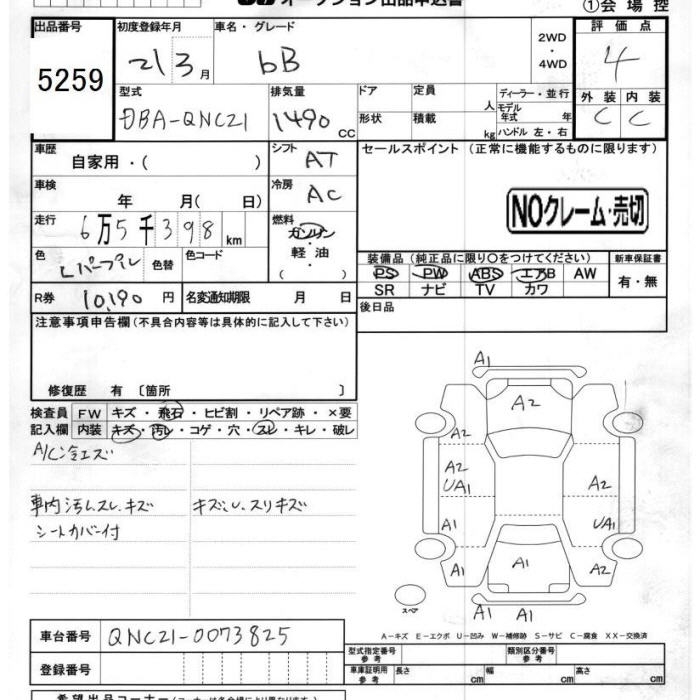 オークション出品申込書
①会場控
出品番号 初度登録年月 車名・グレード 評価点
5259 21 3月 bB 2WD・4WD 4
型式 排気量 ドア 定員 人 ディーラー・並行 外装 内装
DBA-QNC21 1490 CC 形状 積載 kg モデル年式 年 C C
ハンドル 左・右
車歴 自家用・( ) シフト AT セールスポイント (正常に機能するものに限ります)
車検 年 月( 日) 冷房 AC
NOクレーム・売切
走行 6万5千398km 燃料 ガソリン 軽油 ( )
色 Lパープル 色替 色コード
装備品 (純正品に限り○をつけてください) 新車保証書
PS PW ABS エアB AW 有・無
SR ナビ TV カワ
R券 10,190円 名変通知期限 月 日 後日品
注意事項申告欄(不具合内容等は具体的に記入して下さい)
修復歴 有 〔箇所 〕
検査員 FW キズ・飛石・ヒビ割・リペア跡・×要
記入欄 内装 キズ・汚レ・コゲ・穴・スレ・キレ・破レ
A/C冷エズ
車内汚レ.スレ.キズ キズ,U.スリキズ
シートカバー付
A1
A2
A2
A2
UA1
A2
A1
UA1
A1
A1
A2
A1 A1
スペア
A-キズ E-エクボ U-凹み W-補修跡 S-サビ C-腐食 XX-交換済
車台番号 QNC21-0073825
型式指定番号 参考 類別区分番号 参考
登録番号
車庫証明用 参考 長さ cm 幅 cm 高さ cm
希望出品コーナー